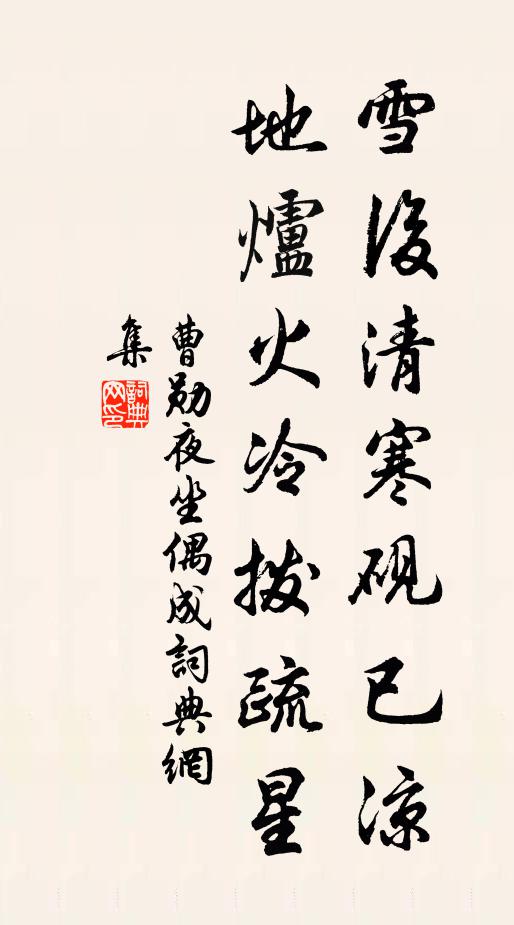 雪後清寒硯已涼
地爐火冷撥疏星
曹勛夜坐偶成詞典網
集
詞典網印